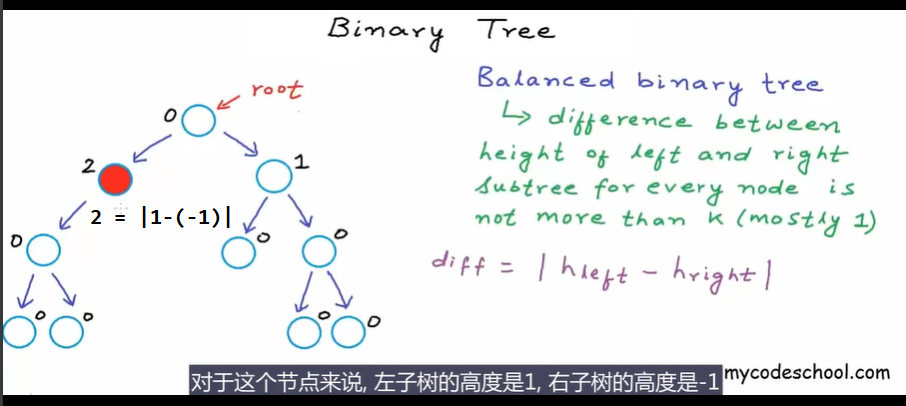 Binary Tree
root
0
2
1
2 = |1-(-1)|
0
0
0
0
0
0
0
Balanced binary tree
↳ difference between
height of left and right
subtree for every node is
not more than k (mostly 1)
diff = | hleft - hright |
对于这个节点来说, 左子树的高度是1, 右子树的高度是-1
mycodeschool.com